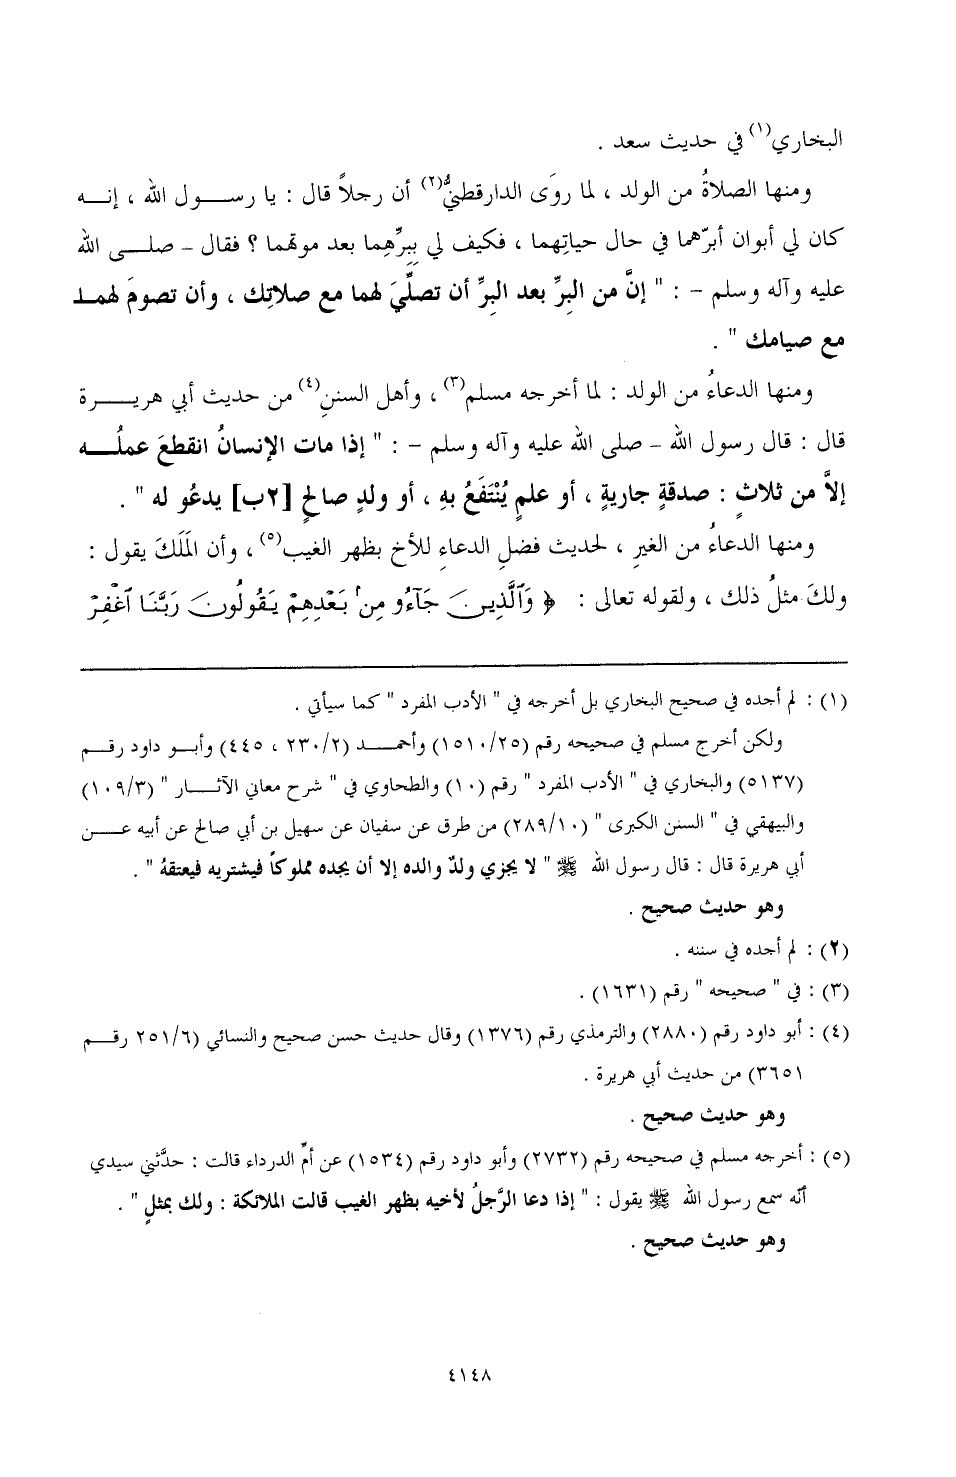 البخاري(١) في حديث سعد .
ومنها الصلاةُ من الولد ، لما روَى الدارقطنيُّ(٢) أن رجلاً قال : يا رسول الله ، إنه
كان لي أبوان أبرّهما في حال حياتِهما ، فكيف لي بِبِرِّهِما بعد موتهما ؟ فقال – صلى الله
عليه وآله وسلم – : " إنَّ من البرِّ بعد البرِّ أن تصلِّيَ لهما مع صلاتِك ، وأن تصومَ لهما
مع صيامك " .
ومنها الدعاءُ من الولد : لما أخرجه مسلم(٣) ، وأهل السننِ(٤) من حديث أبي هريرة
قال : قال رسول الله – صلى الله عليه وآله وسلم – : " إذا مات الإنسانُ انقطعَ عملُه
إلاَّ من ثلاثٍ : صدقةٍ جاريةٍ ، أو علمٍ يُنْتَفَعُ بهِ ، أو ولدٍ صالحٍ [٢ب] يدعُو له " .
ومنها الدعاءُ من الغيرِ ، لحديث فضلِ الدعاءِ للأخ بظهر الغيب(٥) ، وأن الَملَكَ يقول :
ولكَ مثلُ ذلك ، ولقوله تعالى : ﴿ وَٱلَّذِينَ جَآءُو مِنۢ بَعْدِهِمْ يَقُولُونَ رَبَّنَا ٱغْفِرْ
(١) : لم أجده في صحيح البخاري بل أخرجه في " الأدب المفرد " كما سيأتي .
ولكن أخرج مسلم في صحيحه رقم (١٥١٠/٢٥) وأحمد (٢٣٠/٢ ، ٤٤٥) وأبو داود رقم
(٥١٣٧) والبخاري في " الأدب المفرد " رقم (١٠) والطحاوي في " شرح معاني الآثار " (١٠٩/٣)
والبيهقي في " السنن الكبرى " (٢٨٩/١٠) من طرق عن سفيان عن سهيل بن أبي صالح عن أبيه عن
أبي هريرة قال : قال رسول الله ﷺ " لا يجزي ولدٌ والده إلا أن يجده مملوكاً فيشتريه فيعتقهُ " .
وهو حديث صحيح .
(٢) : لم أجده في سننه .
(٣) : في " صحيحه " رقم (١٦٣١) .
(٤) : أبو داود رقم (٢٨٨٠) والترمذي رقم (١٣٧٦) وقال حديث حسن صحيح والنسائي (٢٥١/٦ رقم
٣٦٥١) من حديث أبي هريرة .
وهو حديث صحيح .
(٥) : أخرجه مسلم في صحيحه رقم (٢٧٣٢) وأبو داود رقم (١٥٣٤) عن أمِّ الدرداء قالت : حدَّثني سيدي
أنّه سمع رسول الله ﷺ يقول : " إذا دعا الرَّجلُ لأخيه بظهر الغيب قالت الملائكة : ولك بمثلٍ " .
وهو حديث صحيح .
٤١٤٨